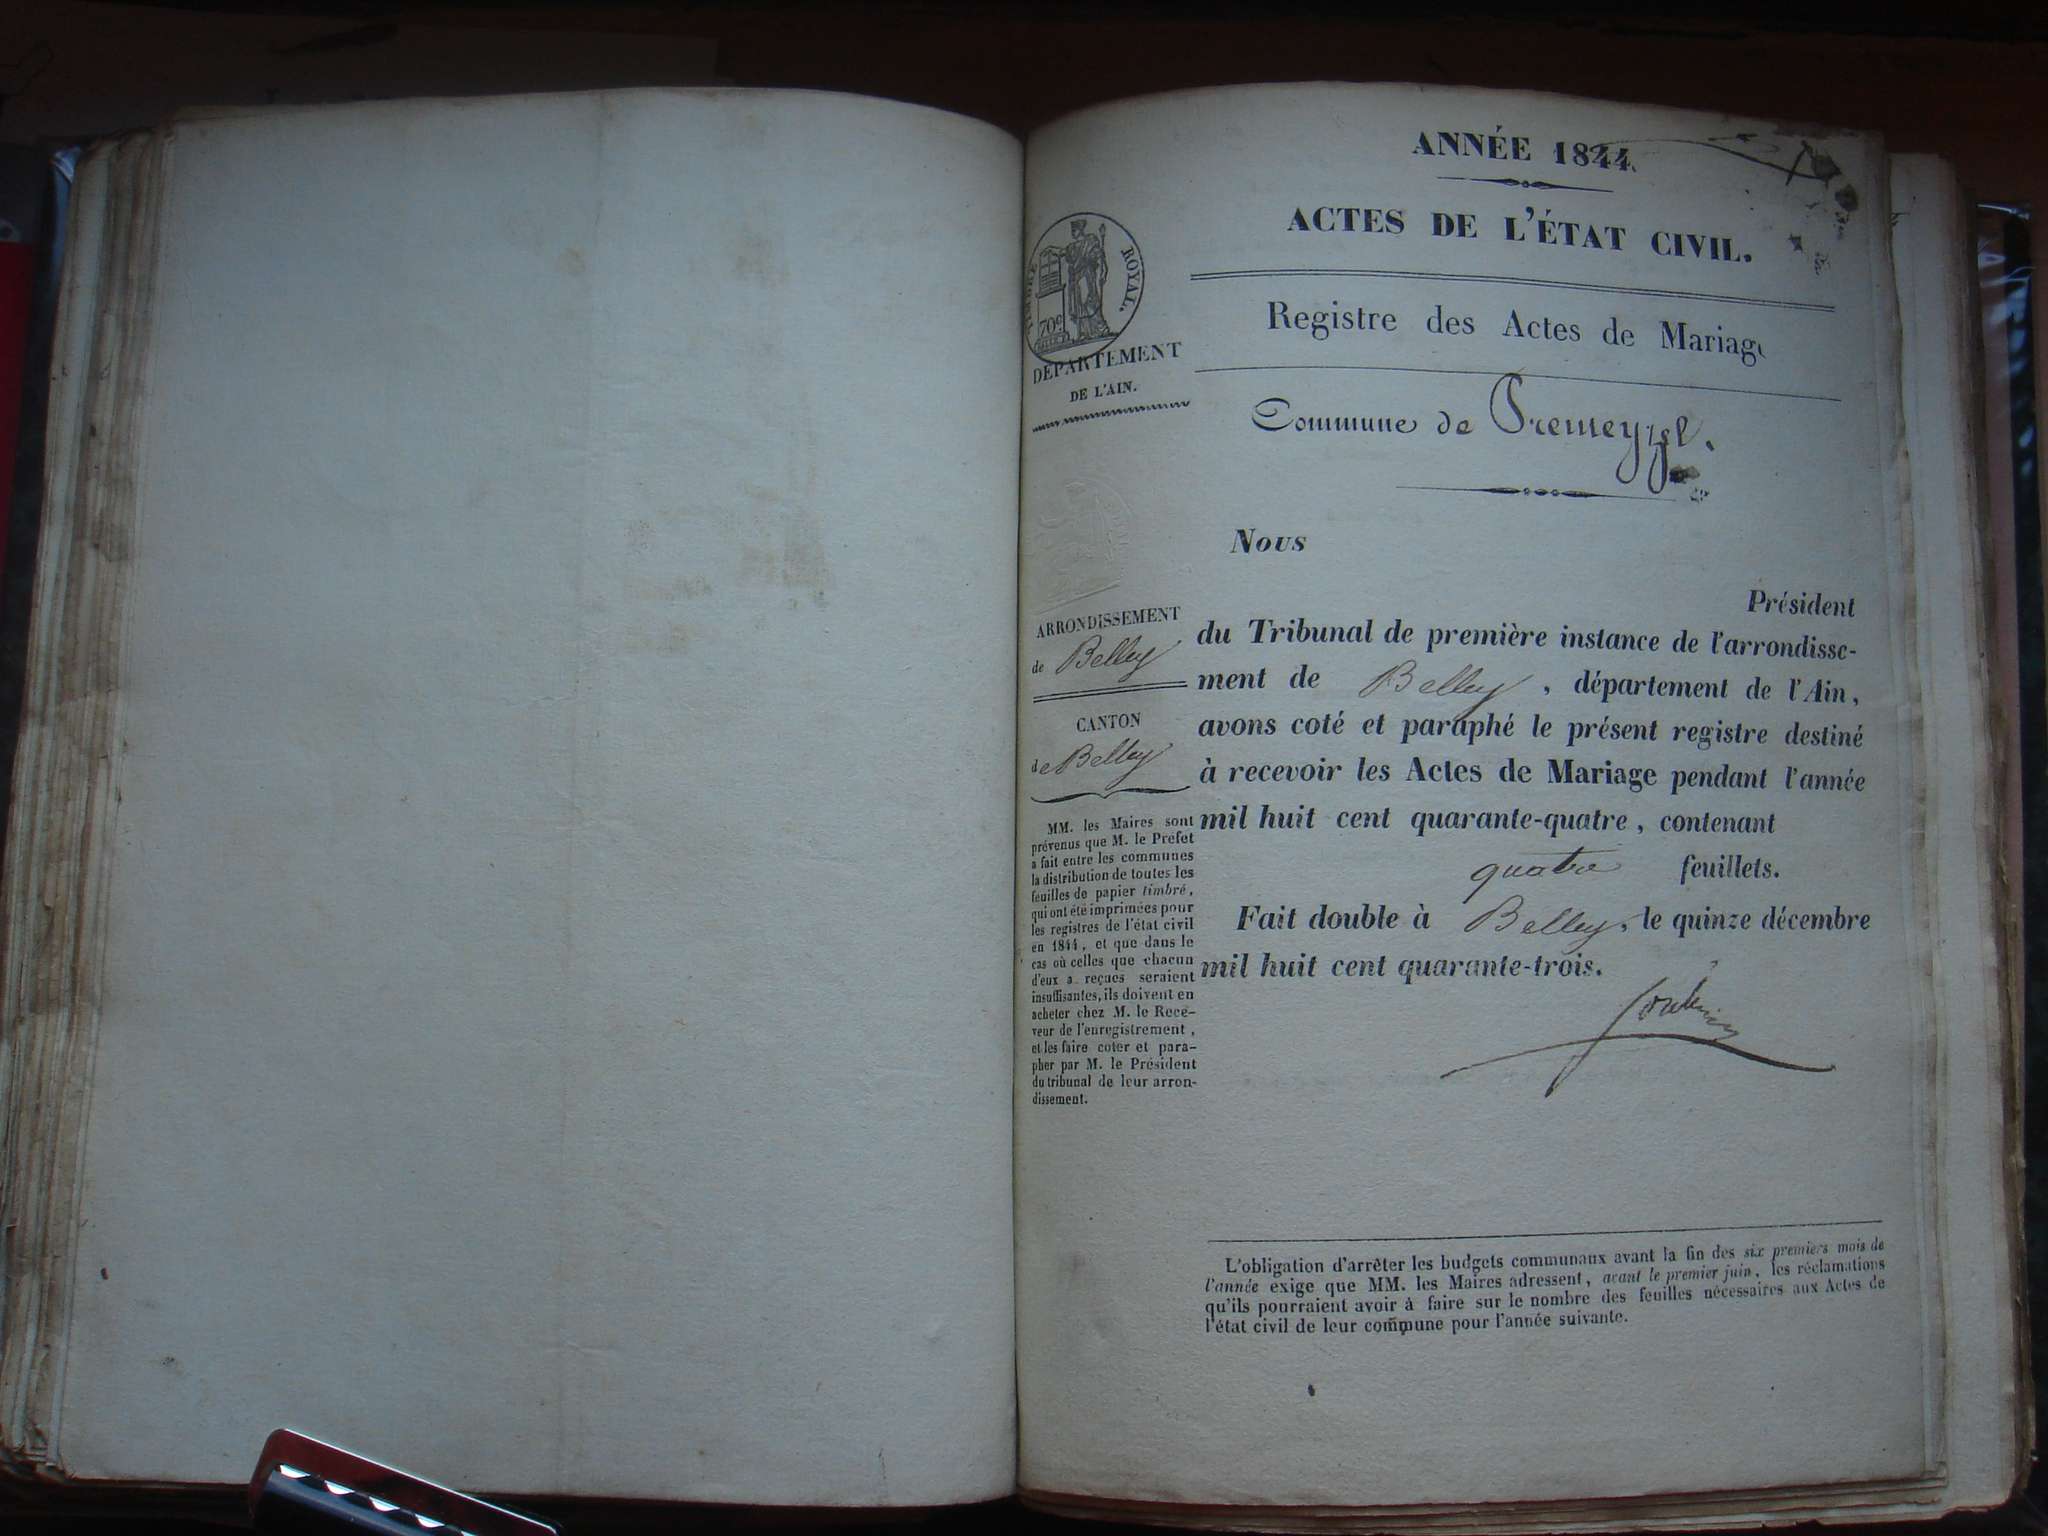 ANNÉE 1844.
ACTES DE L'ÉTAT CIVIL.
Registre des Actes de Mariage
Commune de Premeyzel.
TIMBRE ROYAL.
70c
DÉPARTEMENT
DE L'AIN.
ARRONDISSEMENT
de Belley
CANTON
de Belley
MM. les Maires sont
prévenus que M. le Préfet
a fait entre les communes
la distribution de toutes les
feuilles de papier timbré,
qui ont été imprimées pour
les registres de l'état civil
en 1844, et que dans le
cas où celles que chacun
d'eux a reçues seraient
insuffisantes, ils doivent en
acheter chez M. le Rece-
veur de l'enregistrement,
et les faire coter et para-
pher par M. le Président
du tribunal de leur arron-
dissement.
Nous
Président
du Tribunal de première instance de l'arrondisse-
ment de Belley, département de l'Ain,
avons coté et paraphé le présent registre destiné
à recevoir les Actes de Mariage pendant l'année
mil huit cent quarante-quatre, contenant
quatre feuillets.
Fait double à Belley, le quinze décembre
mil huit cent quarante-trois.
L'obligation d'arrêter les budgets communaux avant la fin des six premiers mois de
l'année exige que MM. les Maires adressent, avant le premier juin, les réclamations
qu'ils pourraient avoir à faire sur le nombre des feuilles nécessaires aux Actes de
l'état civil de leur commune pour l'année suivante.